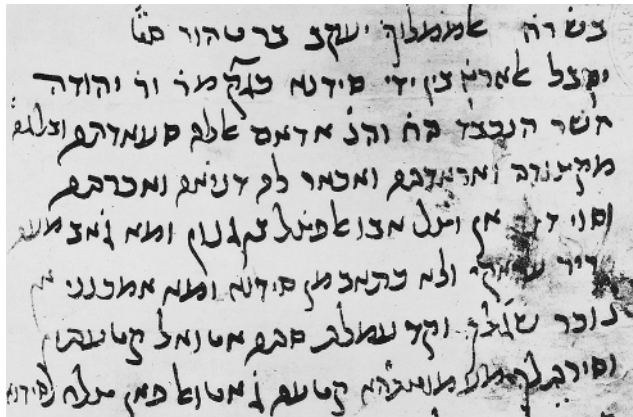 בש רח אלממלוך יעקב ברטהור סט
יקבל אלארץ בין ידי סידנא כגק מר ור יהודה
השר הנכבד בה והנ אדאם אללה סעאדתה ובלגה
מקצודה ואראדתה ואכאר לה דניאה ואכרתה
וסוי אן וצל אבו אלפצל בן ומא גאב מעה
גיר ולא כתאב מן סידנא ומא אמכנני אן
שגלך וקד עמלת סתה אטואל קטעתין
וסירת לך מע קטעה ג אטואל פאן לסידנא